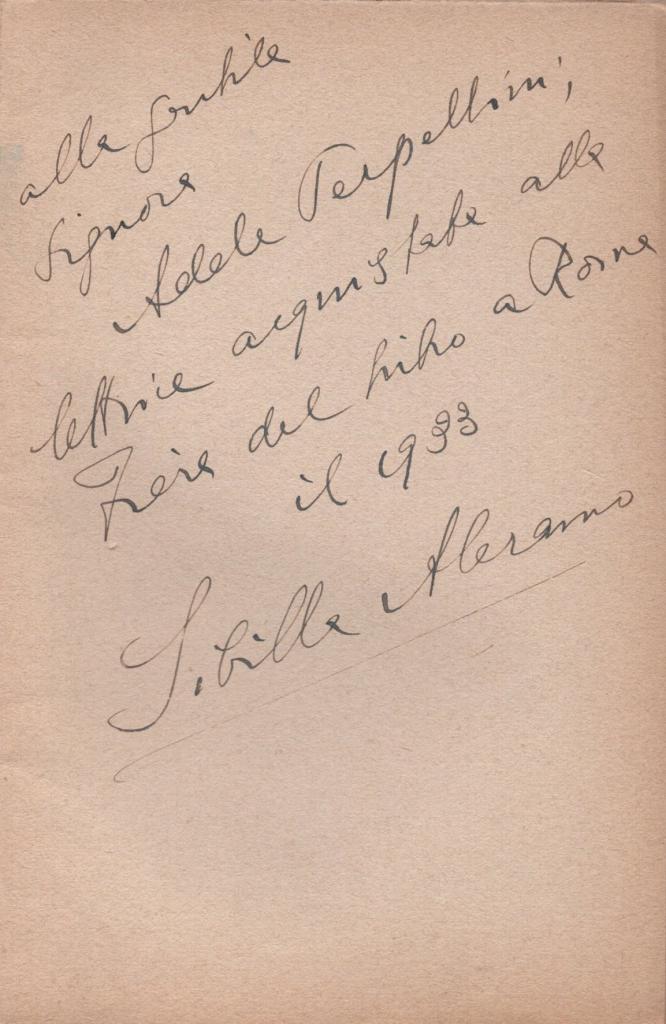 alla gentile
signora
Adele Terpellini,
lettrice acquistata alla
Fiera del libro a Roma
il 1933
Sibilla Aleramo